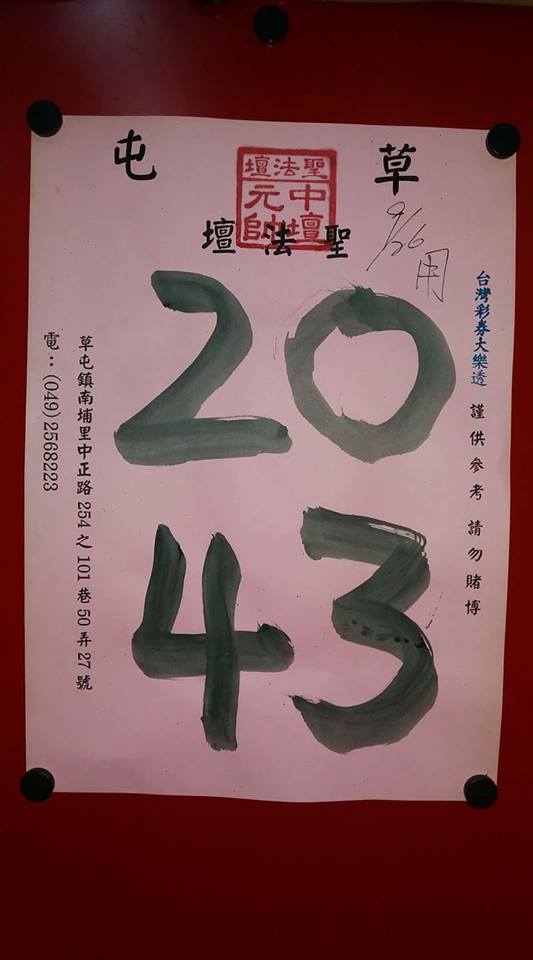 草屯
聖法壇
聖法壇
中壇
元帥
9/26用
台灣彩券大樂透 謹供參考 請勿賭博
20
43
草屯鎮南埔里中正路254之101巷50弄27號
電：(049)2568223